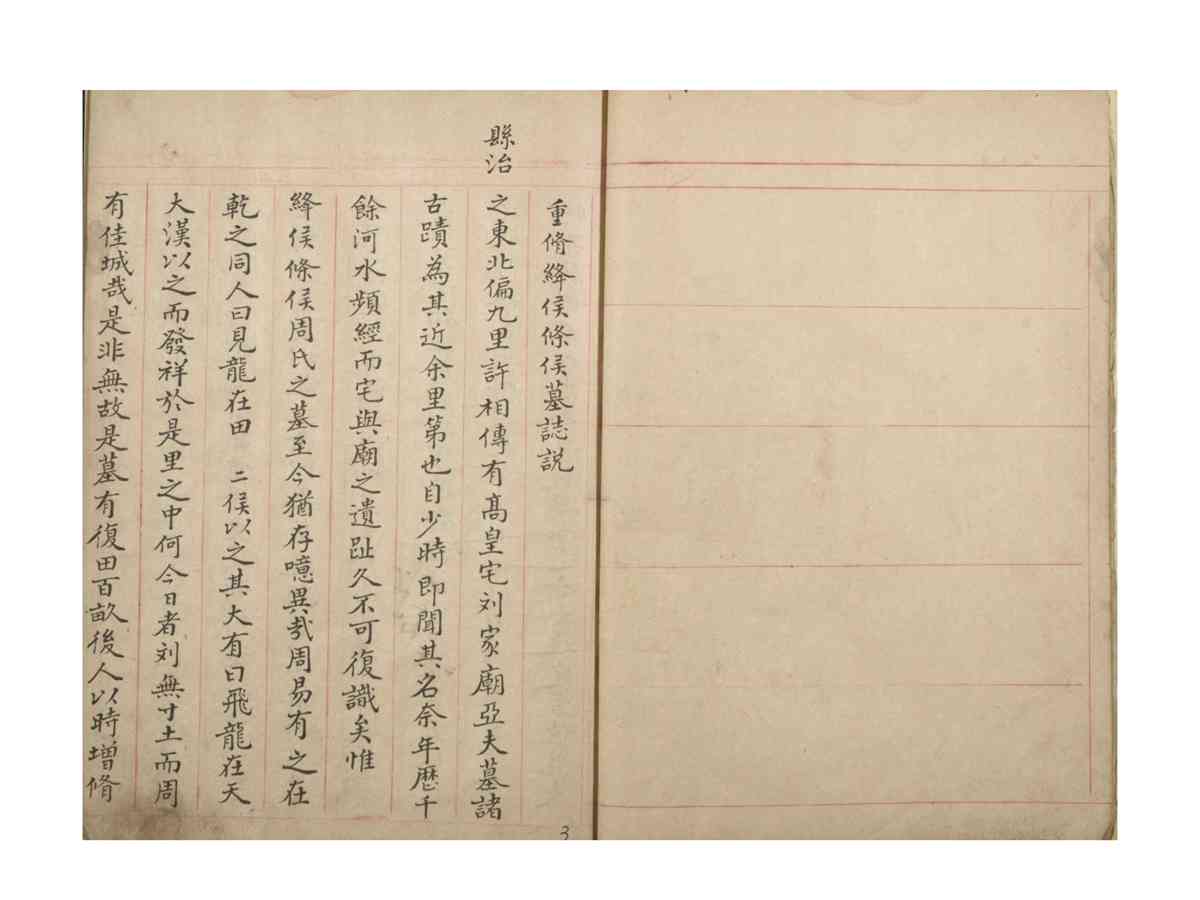 重脩絳侯條侯墓誌説
縣治之東北偏九里許相傳有髙皇宅刘家廟亞夫墓諸
古蹟為其近余里第也自少時即聞其名奈年歴千
餘河水頻經而宅與廟之遺趾久不可復識矣惟
絳侯條侯周氏之墓至今猶存噫異哉周易有之在
乾之同人曰見龍在田 二侯以之其大有曰飛龍在天
大漢以之而發祥於是里之中何今日者刘無寸土而周
有佳城哉是非無故是墓有復田百畝後人以時增脩
3